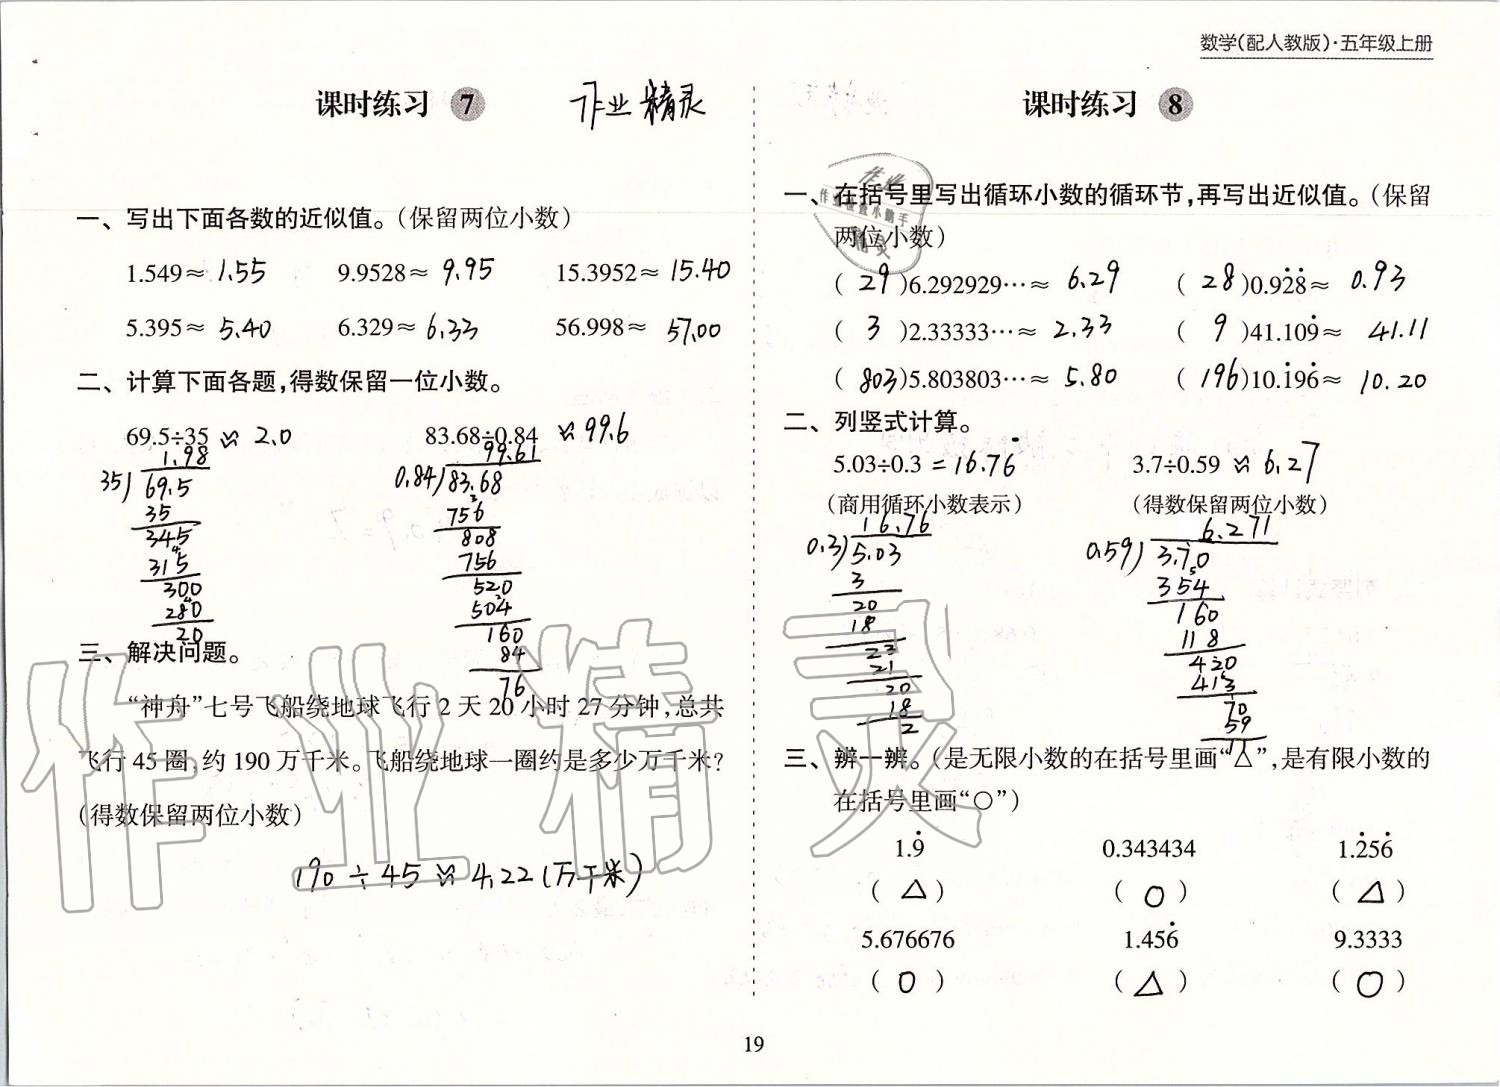 数学(配人教版)·五年级上册
课时练习 7
作业精灵
一、写出下面各数的近似值。(保留两位小数)
1.549≈1.55 9.9528≈9.95 15.3952≈15.40
5.395≈5.40 6.329≈6.33 56.998≈57.00
二、计算下面各题,得数保留一位小数。
69.5÷35≈2.0 83.68÷0.84≈99.6
1.98
35)69.5
35
345
315
300
280
20
99.61
0.84)83.68
756
808
756
520
504
160
84
76
三、解决问题。
“神舟”七号飞船绕地球飞行2天20小时27分钟,总共
飞行45圈,约190万千米。飞船绕地球一圈约是多少万千米?
(得数保留两位小数)
190÷45≈4.22(万千米)
课时练习 8
一、在括号里写出循环小数的循环节,再写出近似值。(保留
两位小数)
(29)6.292929…≈6.29 (28)0.92̇8̇≈0.93
(3)2.33333…≈2.33 (9)41.109̇≈41.11
(803)5.803803…≈5.80 (196)10.1̇96̇≈10.20
二、列竖式计算。
5.03÷0.3=16.76̇ 3.7÷0.59≈6.27
(商用循环小数表示) (得数保留两位小数)
16.76
0.3)5.03
3
20
18
23
21
20
18
2
6.271
0.59)3.70
354
160
118
420
413
70
59
11
三、辨一辨。(是无限小数的在括号里画“△”,是有限小数的
在括号里画“○”)
1.9̇ 0.343434 1.2̇56̇
(△) (○) (△)
5.676676 1.456̇ 9.3333
(○) (△) (○)
19
作业精灵